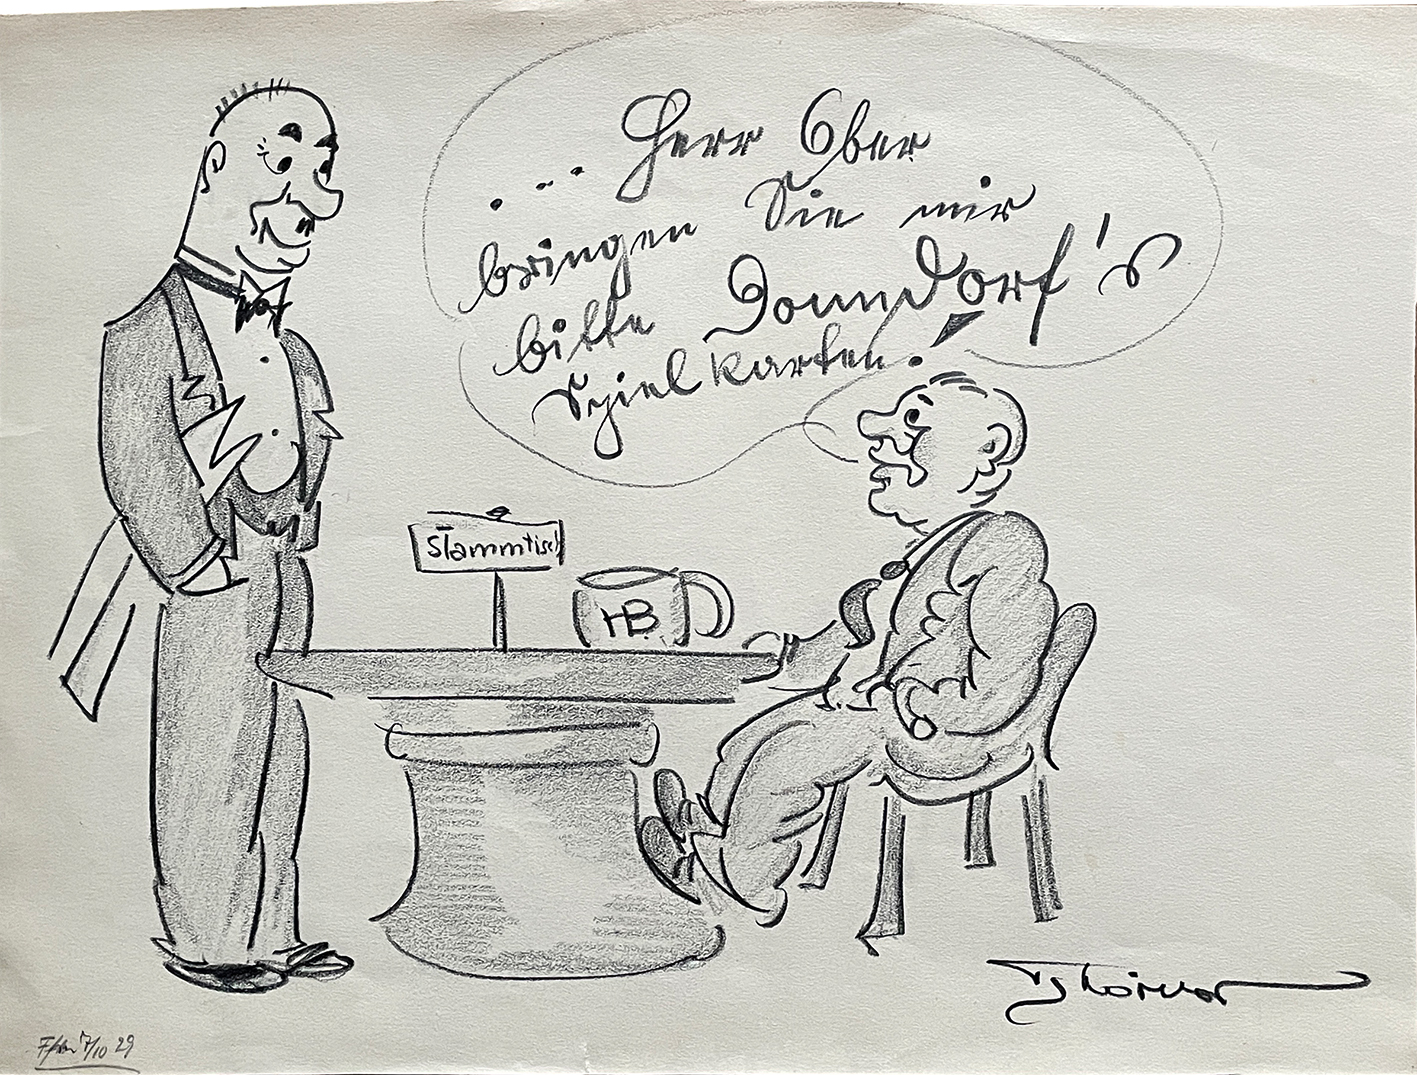 ... Herr Ober
bringen Sie mir
bitte Donndorf's
Spielkarten!
Stammtisch
HB
7/10 29